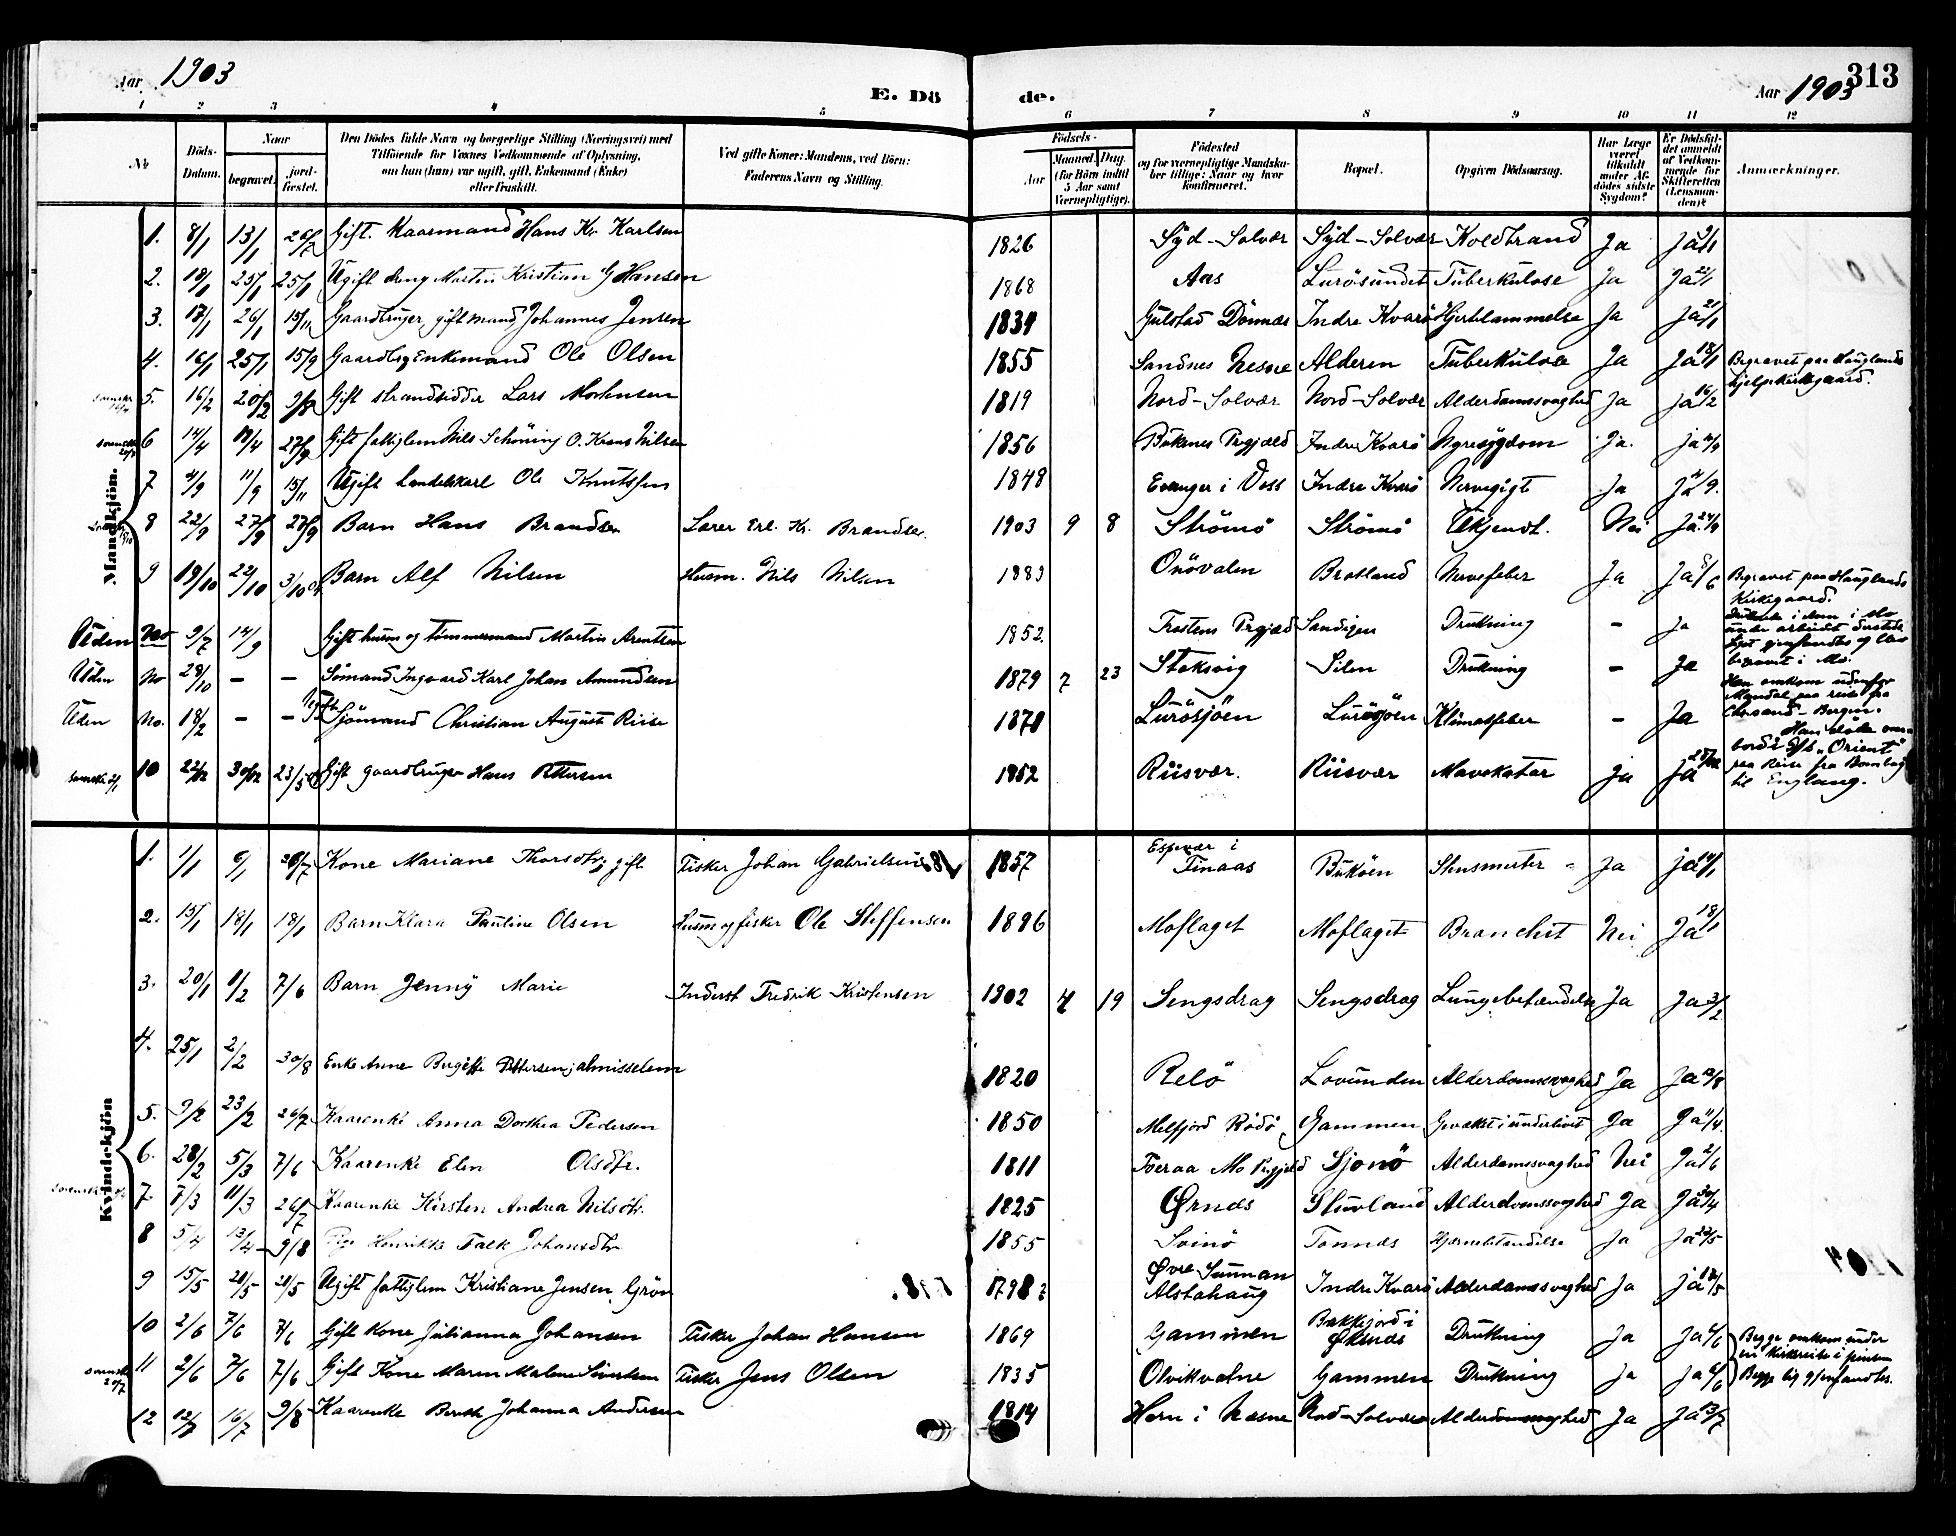 Aar 1903
E. Döde.
Aar 1903
313
1 2 3 4 5 6 7 8 9 10 11 12
No
Döds-Datum.
Naar
begravet.
jord-fæstet.
Den Dödes fulde Navn og borgerlige Stilling (Næringsvei) med
Tilföiende for Voxnes Vedkommende af Oplysning,
om han (hun) var ugift, gift, Enkemand (Enke)
eller fraskilt.
Ved gifte Koner: Mandens, ved Börn:
Faderens Navn og Stilling.
Födsels-
Aar
Maaned. Dag.
(for Börn indtil
5 Aar samt
Værnepligtige).
Födested
og for værnepligtige Mandska-
ber tillige: Naar og hvor
konfirmeret.
Bopæl.
Opgiven Dödsaarsag.
Har Læge
været
tilkaldt
under Af-
dödes sidste
Sygdom?
Er Dödsfal-
det anmeldt
af Vedkom-
mende for
Skifteretten
(Lensman-
den)?
Anmærkninger.
Mandkjön.
1. 8/1 13/1 26/7 Gift. Kaarmand Hans Kr. Karlsen 1826 Syd-Solvær Syd-Solvær Koldbrand Ja Ja
2. 18/1 25/1 25/1 Ugift dreng Martin Kristian G Hansen 1868 Aas Lurösundet Tuberkulose Ja Ja 22/1
3. 17/1 26/1 15/11 Gaardbruger gift mand Johannes Jensen 1839 Gulstad Dönnæs Indre Kvarö Hjertelammelse Ja Ja 21/1
4. 16/1 25/1 15/9 Gaardbr Enkemand Ole Olsen 1855 Sandnes Nesne Alderen Tuberkulose Ja Ja 18/1 Begravet paa Hauglands
hjelpekirkegaard.
5. 16/2 20/2 9/8 Gift strandsidder Lars Mortensen 1819 Nord-Solvær Nord-Solvær Alderdomssvaghed Ja Ja 16/2
6 14/4 19/4 27/9 Gift fattiglem Nils Schöning O. Krans Nilsen 1856 Buksnes Prgjæld Indre Kvarö Nyresygdom Ja. ja
7 4/9 11/9 15/11 Ugift handelskarl Ole Knutssen 1848 Evanger i Voss Indre Kvarö Nervegigt Ja Ja
8 22/9 27/9 27/9 Barn Hans Brandsen Lærer Erl. Kr. Brandsen. 1903 9 8 Strömö Strömö Ukjendt. Nei Ja 24/9
9 19/10 22/10 3/10 Barn Alf Nilsen Husm. Nils Nilsen 1883 Onövalen Bratland Nervefeber Ja Ja Begravet paa Hauglands
Kirkegaard.
Uden No 9/7 14/9 Gift husm og tömmermand Martin Arentsen 1852. Trostens Prgjæld Sandigen Drukning – Ja
begravet i Mo.
Uden No 28/10 – – Sömand Ingvard Karl Johan Amundsen 1879 7 23 Stoksvig Silen Drukning – Ja Han omkom udenfor
Mandal paa reise fra
Chrsand – Bergen.
Uden No. 18/2 – – Sjömand Christian August Riise 1870 Lurösjöen Lurösjöen Klimatfeber – Ja Han döde om-
bord i S/S "Orient"
paa Reise fra Bombay
til England.
10 22/12 30/12 23/5 Gift gaardbruger Hans Pettersen 1852 Riisvær. Riisvær Mavekatar Ja Ja
Kvindekjön
1. 1/1 6/1 26/7 Kone Mariane Thorsdtr gift Fisker Johan Gabrielsen 1857 Espevær i
Finaas Buköen Stensmerter Ja ja
2. 15/1 18/1 18/1 Barn Klara Pauline Olsen Husm og fisker Ole Steffensen 1896 Moflaget Moflaget Bronchit Nei Ja 18/1
3. 20/1 1/2 7/6 Barn Jenny Marie Inderst Fredrik Kristensen 1902 4 19 Sengsdrag Sengsdrag Lungebetændelse Ja Ja 3/2
4. 25/1 2/2 30/8 Enke Anne Bergitte Pettersen, almisselem 1820 Relö Lovunden Alderdomssvaghed Ja Ja
5. 9/2 23/2 26/7 Kaarenke Anna Dorthea Pedersen 1850 Melfjord Rödö Gammen Gevækst i underlivet Ja Ja
6. 28/2 5/3 7/6 Kaarenke Elen Olsdtr. 1811 Toeraa Mo Prgjeld Sjonö Alderdomssvaghed Nei Ja
7. 7/3 11/3 26/7 Kaarenke Kirsten Andrea Nilsdtr. 1825 Ørnæs Stuvland Alderdomssvaghed Ja Ja
8 5/4 13/4 9/8 Henrikke Falk Johansdtr 1855 Svinö Tonnæs Hjernebetændelse Ja Ja
9 15/5 20/5 20/5 Ugift fattiglem Kristiane Jensen Grön 1798? Øvre Sunnan
Alstahaug Indre Kvarö Alderdomssvaghed Ja ja
10 2/6 7/6 7/6 Gift Kone Julianna Johansen Fisker Johan Hansen 1869 Gammen Bakkfjord i
Øksnæs Drukning Ja Ja 6/6 Begge omkom under
en kirkereise i pinsen
11 2/6 7/6 7/6 Gift Kone Maren Malene Sivertsen Fisker Jens Olsen 1835 Olvikvatne Gammen Drukning Ja Ja 6/6 Begge lig gjenfandtes.
12 12/7 16/7 9/8 Kaarenke Berith Johanna Andersen 1814 Horn i Næsne Nord-Solvær Alderdomssvaghed Ja Ja 13/7